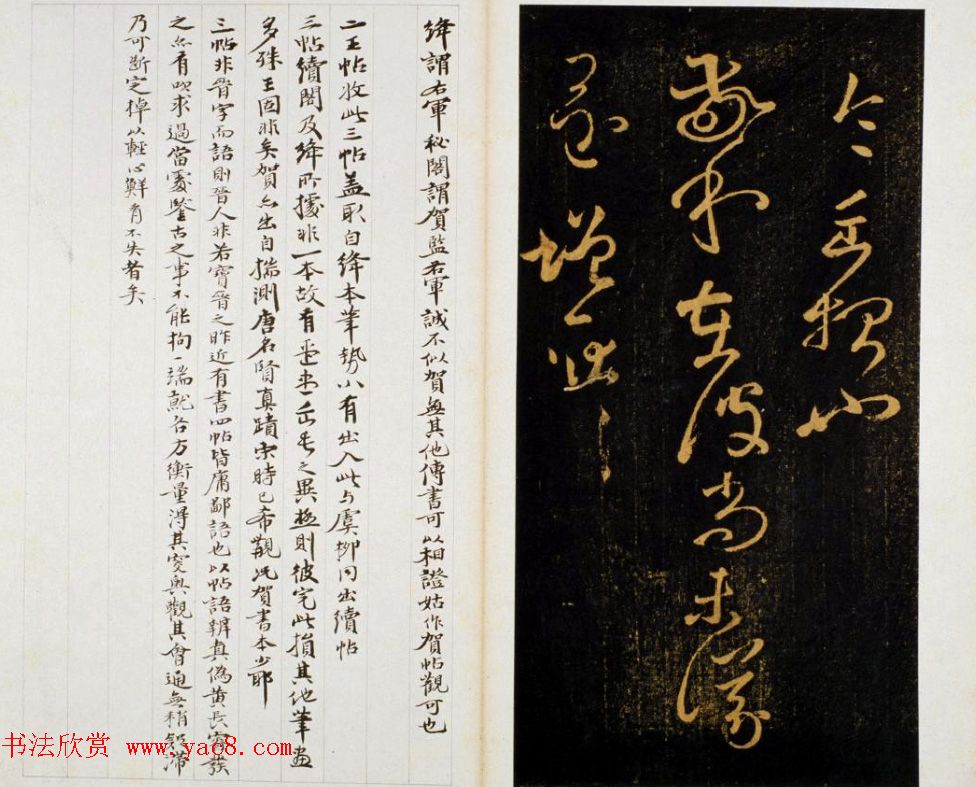 今玉趍山
在彼尚未深
絳謂右軍秘閣謂賀監右軍誠不似賀無其他傳書可以相證姑作賀帖觀可也
二王帖收此三帖蓋取自絳本筆勢小有出入此与虞柳同出續帖
三帖續閣及絳所據非一本故有之異極則彼完此損其他筆畫
多殊王固非矣賀亦出自揣測唐名賢真蹟宋時已希觀况賀書本少耶
三帖非晉字而語則晉人非若寶晉之昨近有書四帖皆庸鄙語也以帖語辨真偽黃長睿發
之亦有吹求過當處鑒古之事不能拘一端就各方衡量得其変與觀其會通無稍滯
乃可斷定掉以輕心鮮有不失者矣
书法欣赏 www.yac8.com